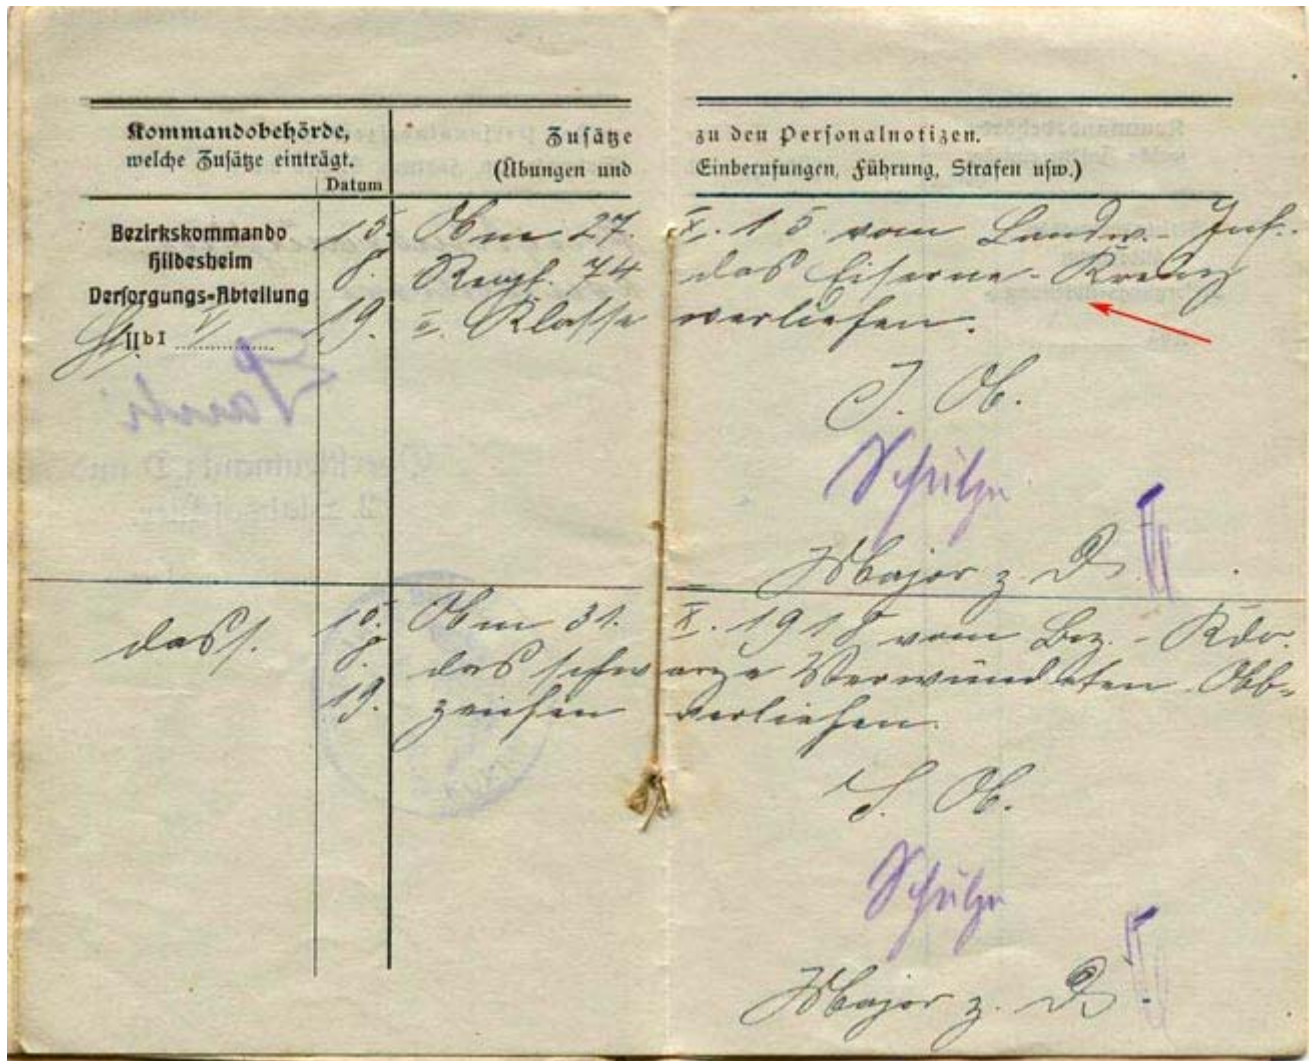 Kommandobehörde,
welche Zusätze einträgt.
Datum
Zusätze zu den Personalnotizen.
(Übungen und Einberufungen, Führung, Strafen usw.)
Bezirkskommando
Hildesheim
Versorgungs-Abteilung
IIbI
15.
8.
19.
Am 27. X. 15 vom Landw.-Inf.-
Regt. 74 das Eiserne-Kreuz
II. Klasse verliehen.
J. A.
Schulze
Major z. D.
dass.
15.
8.
19.
Am 31. X. 1918 vom Bez.-Kdo.
das schwarze Verwundeten Ab-
zeichen verliehen.
J. A.
Schulze
Major z. D.